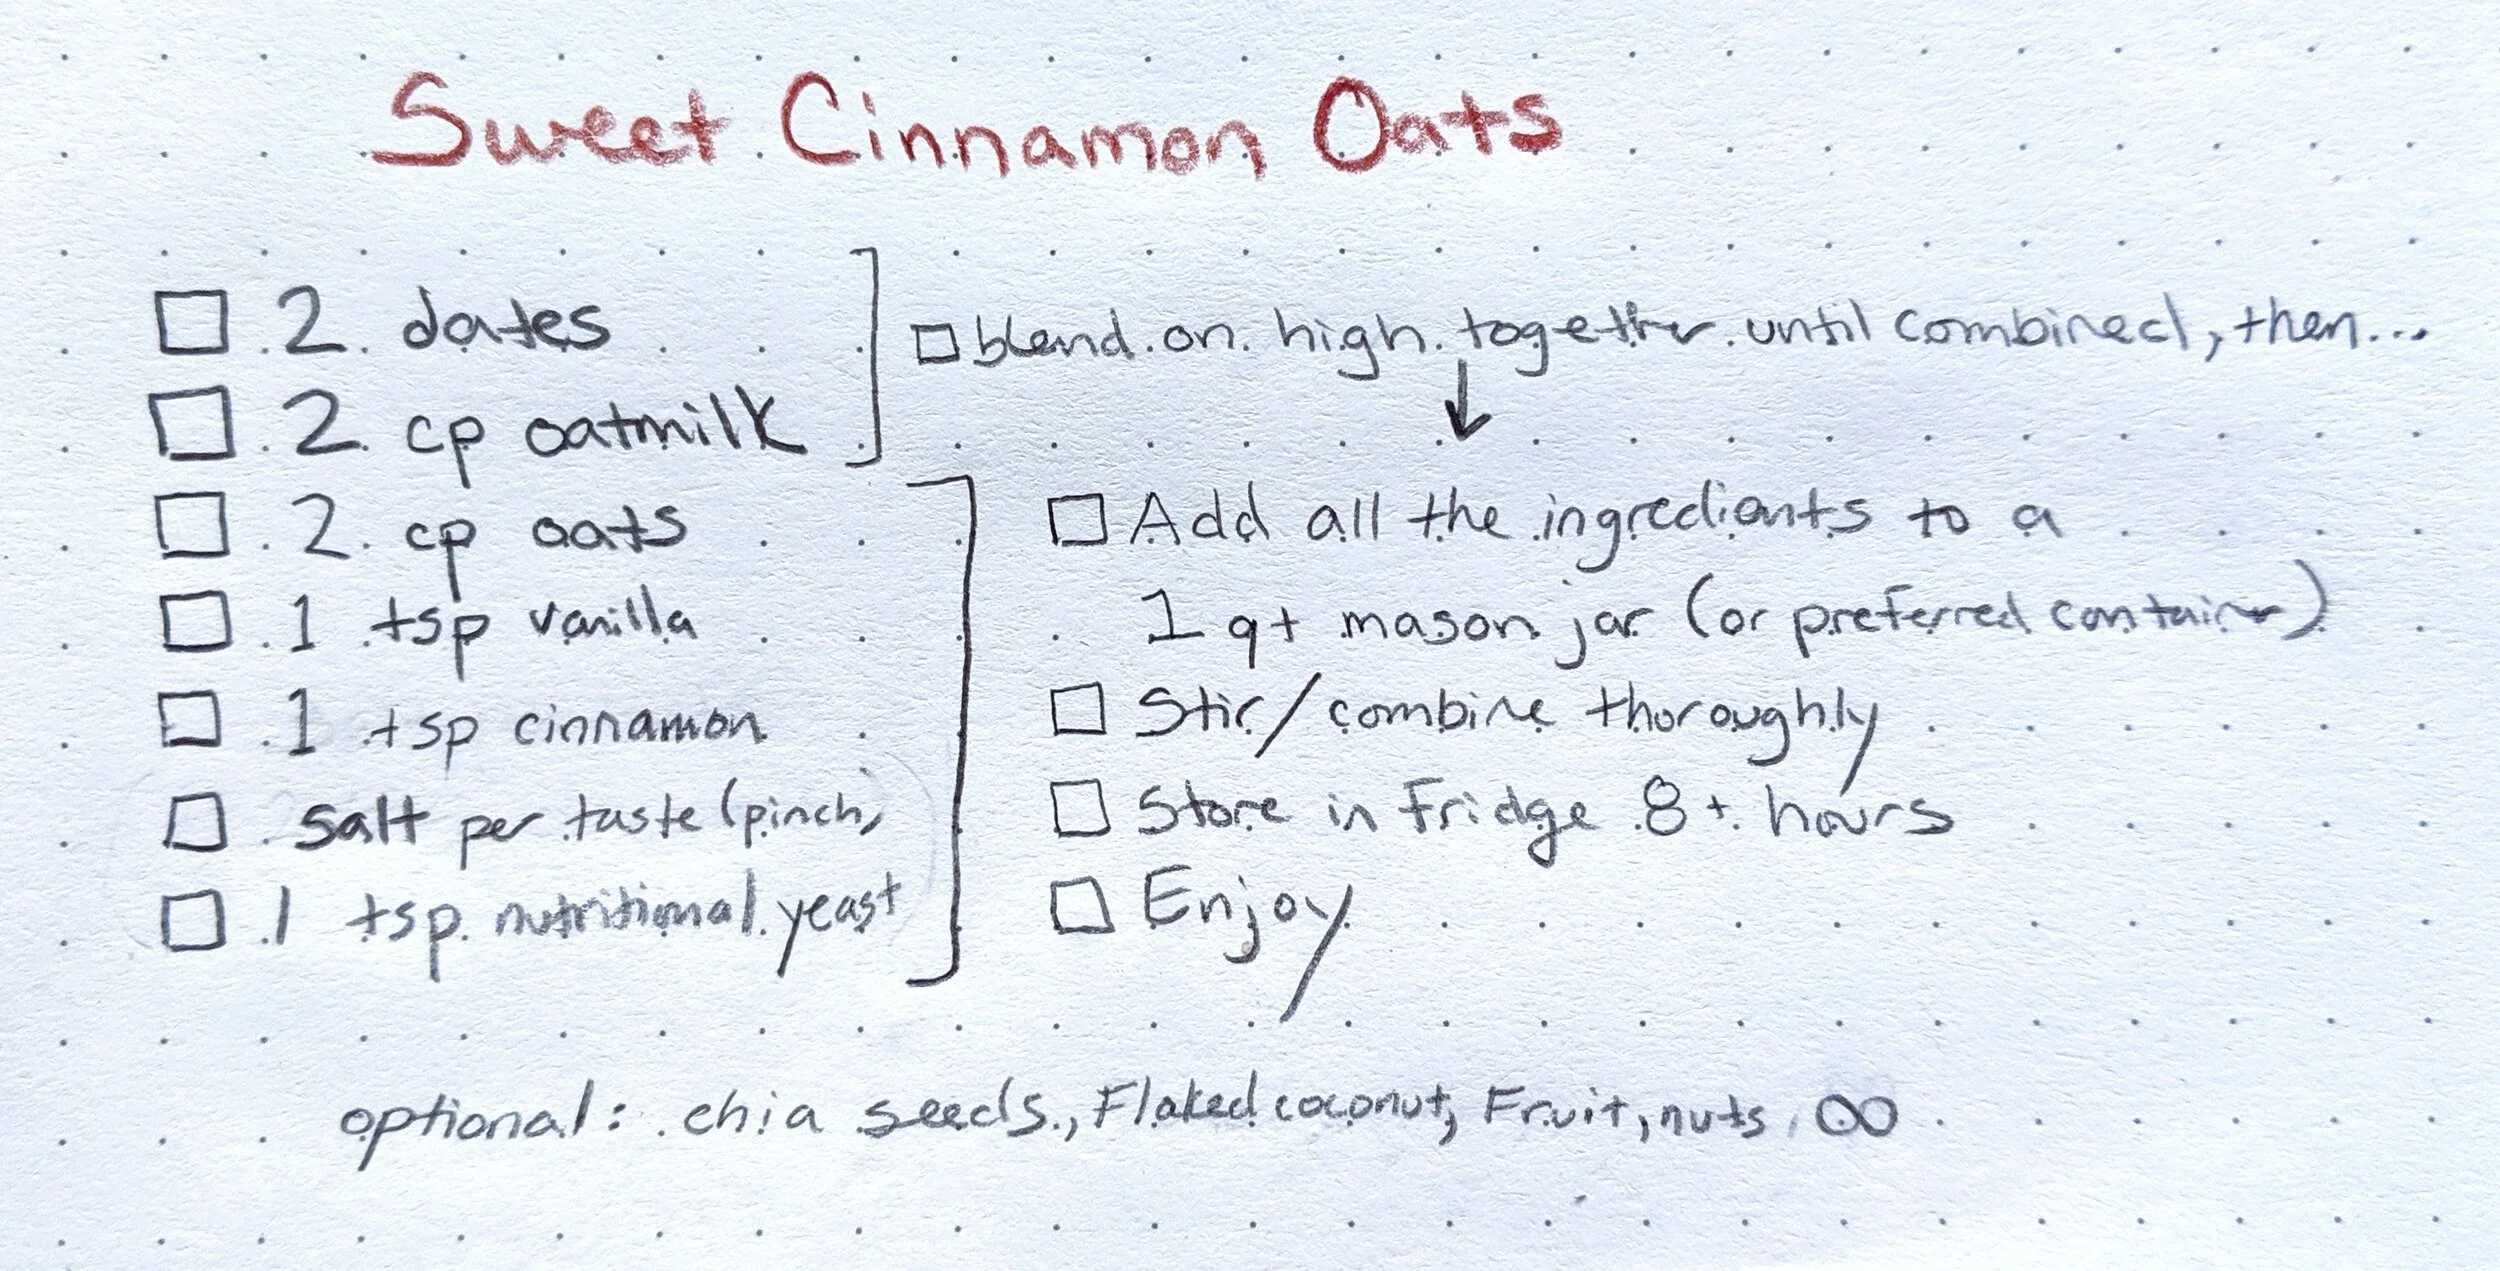 Sweet Cinnamon Oats
2 dates
2 cp oatmilk
blend on high together until combined, then...
2 cp oats
1 tsp vanilla
1 tsp cinnamon
salt per taste (pinch)
1 tsp nutritional yeast
Add all the ingrediants to a
1 qt mason jar (or preferred container)
Stir/combine thoroughly
Store in fridge 8+ hours
Enjoy
optional: chia seeds, Flaked coconut, Fruit, nuts, ∞